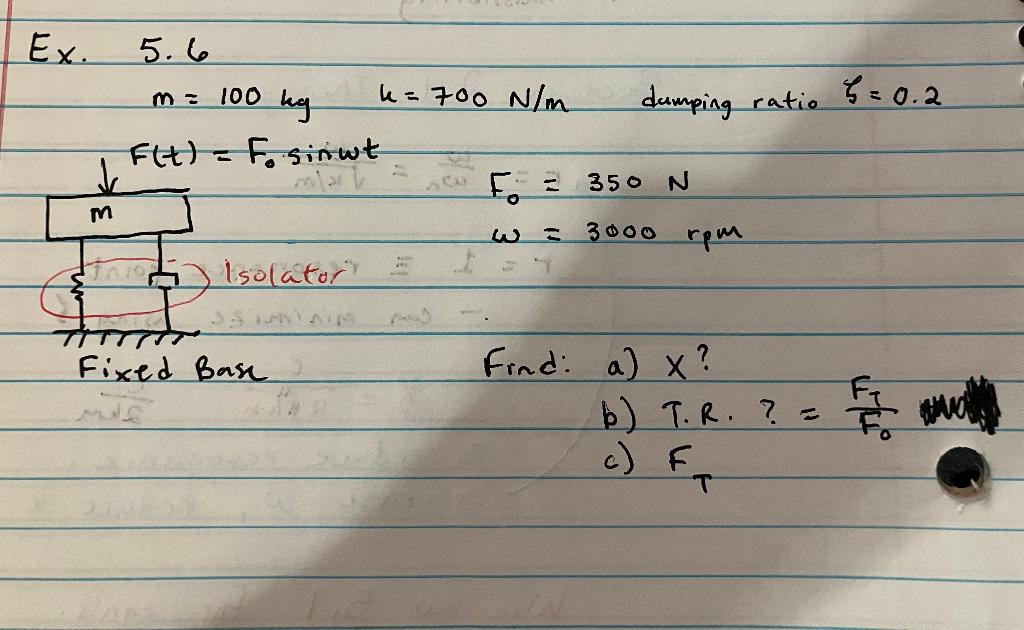 Ex. 5.6
m = 100 kg k = 700 N/m damping ratio ζ = 0.2
F(t) = F₀ sinωt
F₀ = 350 N
m
ω = 3000 rpm
Isolator
Fixed Base
Find: a) X?
b) T.R. ? = F_T/F₀
c) F_T